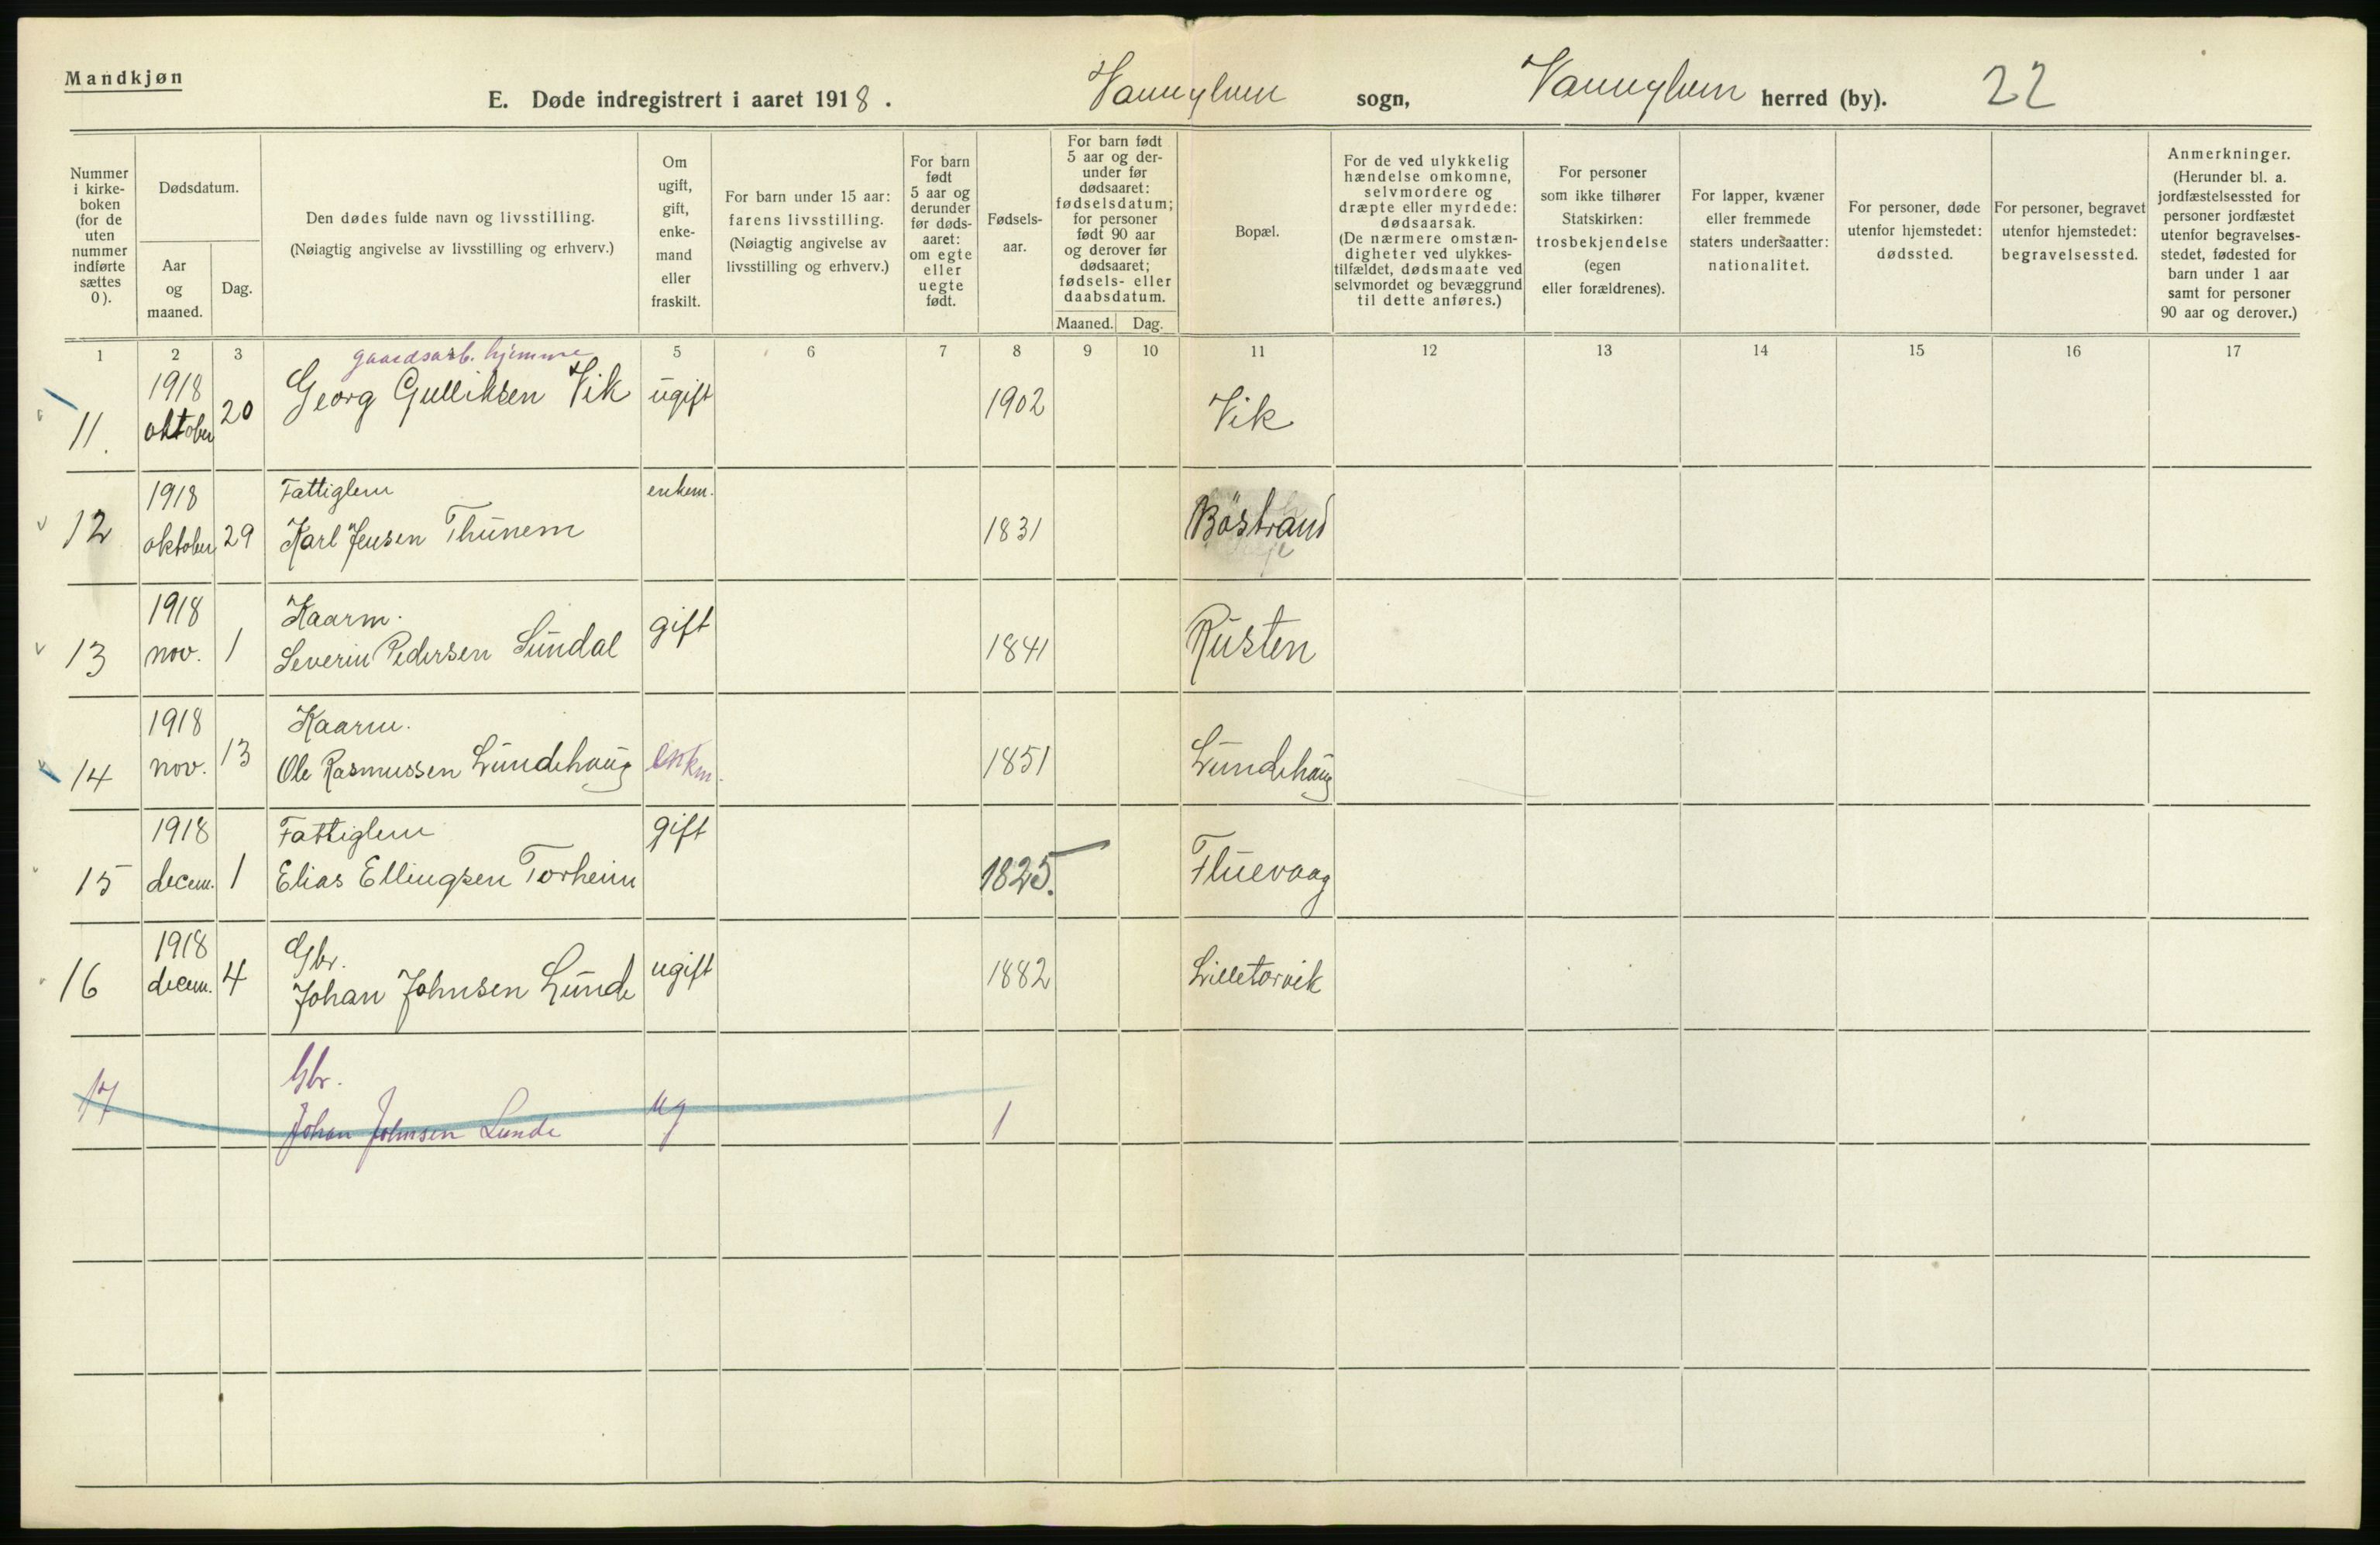 Mandkjøn
E. Døde indregistrert i aaret 1918. Vanylven sogn, Vanylven herred (by). 22
Nummer i kirke- boken (for de uten nummer indførte sættes 0).
Dødsdatum.
Aar og maaned.
Dag.
Den dødes fulde navn og livsstilling.
(Nøiagtig angivelse av livsstilling og erhverv.)
Om ugift, gift, enke- mand eller fraskilt.
For barn under 15 aar: farens livsstilling. (Nøiagtig angivelse av livsstilling og erhverv.)
For barn født 5 aar og derunder før døds- aaret: om egte eller uegte født.
Fødsels- aar.
For barn født 5 aar og der- under før dødsaaret: fødselsdatum; for personer født 90 aar og derover før dødsaaret; fødsels- eller daabsdatum.
Maaned. Dag.
Bopæl.
For de ved ulykkelig hændelse omkomne, selvmordere og dræpte eller myrdede: dødsaarsak. (De nærmere omstæn- digheter ved ulykkes- tilfældet, dødsmaate ved selvmordet og bevæggrund til dette anføres.)
For personer som ikke tilhører Statskirken: trosbekjendelse (egen eller forældrenes).
For lapper, kvæner eller fremmede staters undersaatter: nationalitet.
For personer, døde utenfor hjemstedet: dødssted.
For personer, begravet utenfor hjemstedet: begravelsessted.
Anmerkninger. (Herunder bl. a. jordfæstelsessted for personer jordfæstet utenfor begravelses- stedet, fødested for barn under 1 aar samt for personer 90 aar og derover.)
1 2 3 5 6 7 8 9 10 11 12 13 14 15 16 17
gaardsarb. hjemme
11. 1918 oktober 20 Georg Gulliksen Vik ugift 1902 Vik
Fattiglem
12 1918 oktober 29 Karl Jensen Thunem enkem. 1831 Böstrand
Kaarm.
13 1918 nov. 1 Severin Pedersen Sundal gift 1841 Rusten
Kaarm.
14 1918 nov. 13 Ole Rasmussen Lundehaug enkm. 1851 Lundehaug
Fattiglem
15 1918 decem. 1 Elias Ellingsen Torheim gift 1825. Fluevaag
Gbr.
16 1918 decem. 4 Johan Johnsen Lunde ugift 1882 Lilletorvik
Gbr.
17 Johan Johnsen Lunde ug 1